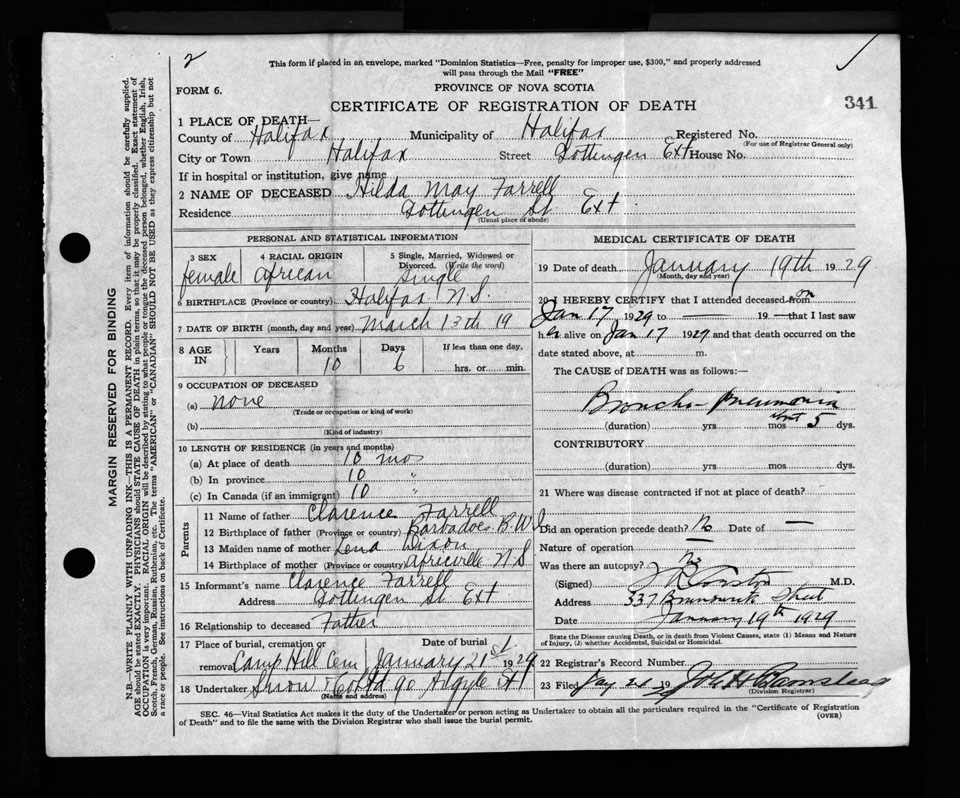 2
This form if placed in an envelope, marked "Dominion Statistics—Free, penalty for improper use, $300," and properly addressed
will pass through the Mail "FREE"
FORM 6.
PROVINCE OF NOVA SCOTIA
CERTIFICATE OF REGISTRATION OF DEATH
341
1 PLACE OF DEATH—
County of Halifax Municipality of Halifax Registered No.
(For use of Registrar General only)
City or Town Halifax Street Gottingen Ext House No.
If in hospital or institution, give name
2 NAME OF DECEASED Hilda May Farrell
Residence Gottingen St. Ext
(Usual place of abode)
PERSONAL AND STATISTICAL INFORMATION
3 SEX 4 RACIAL ORIGIN 5 Single, Married, Widowed or
Divorced. (Write the word)
female African Single
6 BIRTHPLACE (Province or country) Halifax N.S.
7 DATE OF BIRTH (month, day and year) March 13th 19
8 AGE IN Years Months Days If less than one day,
10 6 hrs. or min.
9 OCCUPATION OF DECEASED
(a) none
(Trade or occupation or kind of work)
(b)
(Kind of industry)
10 LENGTH OF RESIDENCE (in years and months)
(a) At place of death 10 mos
(b) In province 10 "
(c) In Canada (if an immigrant) 10 "
Parents
11 Name of father Clarence Farrell
12 Birthplace of father (Province or country) Barbadoes B.W.I.
13 Maiden name of mother Lena Dixon
14 Birthplace of mother (Province or country) Africville N S
15 Informant's name Clarence Farrell
Address Gottingen St. Ext
16 Relationship to deceased Father
17 Place of burial, cremation or Date of burial
removal Camp Hill Cem January 21st 1929
18 Undertaker Snow & Co Ltd 90 Argyle St
(Name and address)
MEDICAL CERTIFICATE OF DEATH
19 Date of death January 19th 1929
(Month, day and year)
20 I HEREBY CERTIFY that I attended deceased from on
Jan 17 1929 to — 19 — that I last saw
h er alive on Jan 17 1929 and that death occurred on the
date stated above, at m.
The CAUSE of DEATH was as follows:—
Broncho-Pneumonia
(duration) yrs mos 5 dys.
CONTRIBUTORY
(duration) yrs mos dys.
21 Where was disease contracted if not at place of death?
Did an operation precede death? No Date of —
Nature of operation —
Was there an autopsy? No
(Signed) M.D.
Address 337 Brunswick Street
Date January 19th 1929
State the Disease causing Death, or in death from Violent Causes, state (1) Means and Nature
of Injury, (2) whether Accidental, Suicidal or Homicidal.
22 Registrar's Record Number
23 Filed Jan 21 19
(Division Registrar)
SEC. 46—Vital Statistics Act makes it the duty of the Undertaker or person acting as Undertaker to obtain all the particulars required in the "Certificate of Registration
of Death" and to file the same with the Division Registrar who shall issue the burial permit.
(OVER)
MARGIN RESERVED FOR BINDING
N.B.—WRITE PLAINLY WITH UNFADING INK—THIS IS A PERMANENT RECORD. Every item of information should be carefully supplied.
AGE should be stated EXACTLY. PHYSICIANS should STATE CAUSE OF DEATH in plain terms, so that it may be properly classified. Exact statement of
OCCUPATION is very important. RACIAL ORIGIN will be described by stating to what people or tongue the deceased person belonged, whether English, Irish,
Scotch, French, German, Russian, Ruthenian, etc. The terms "AMERICAN" or "CANADIAN" SHOULD NOT BE USED as they express citizenship but not
a race or people. See instructions on back of Certificate.